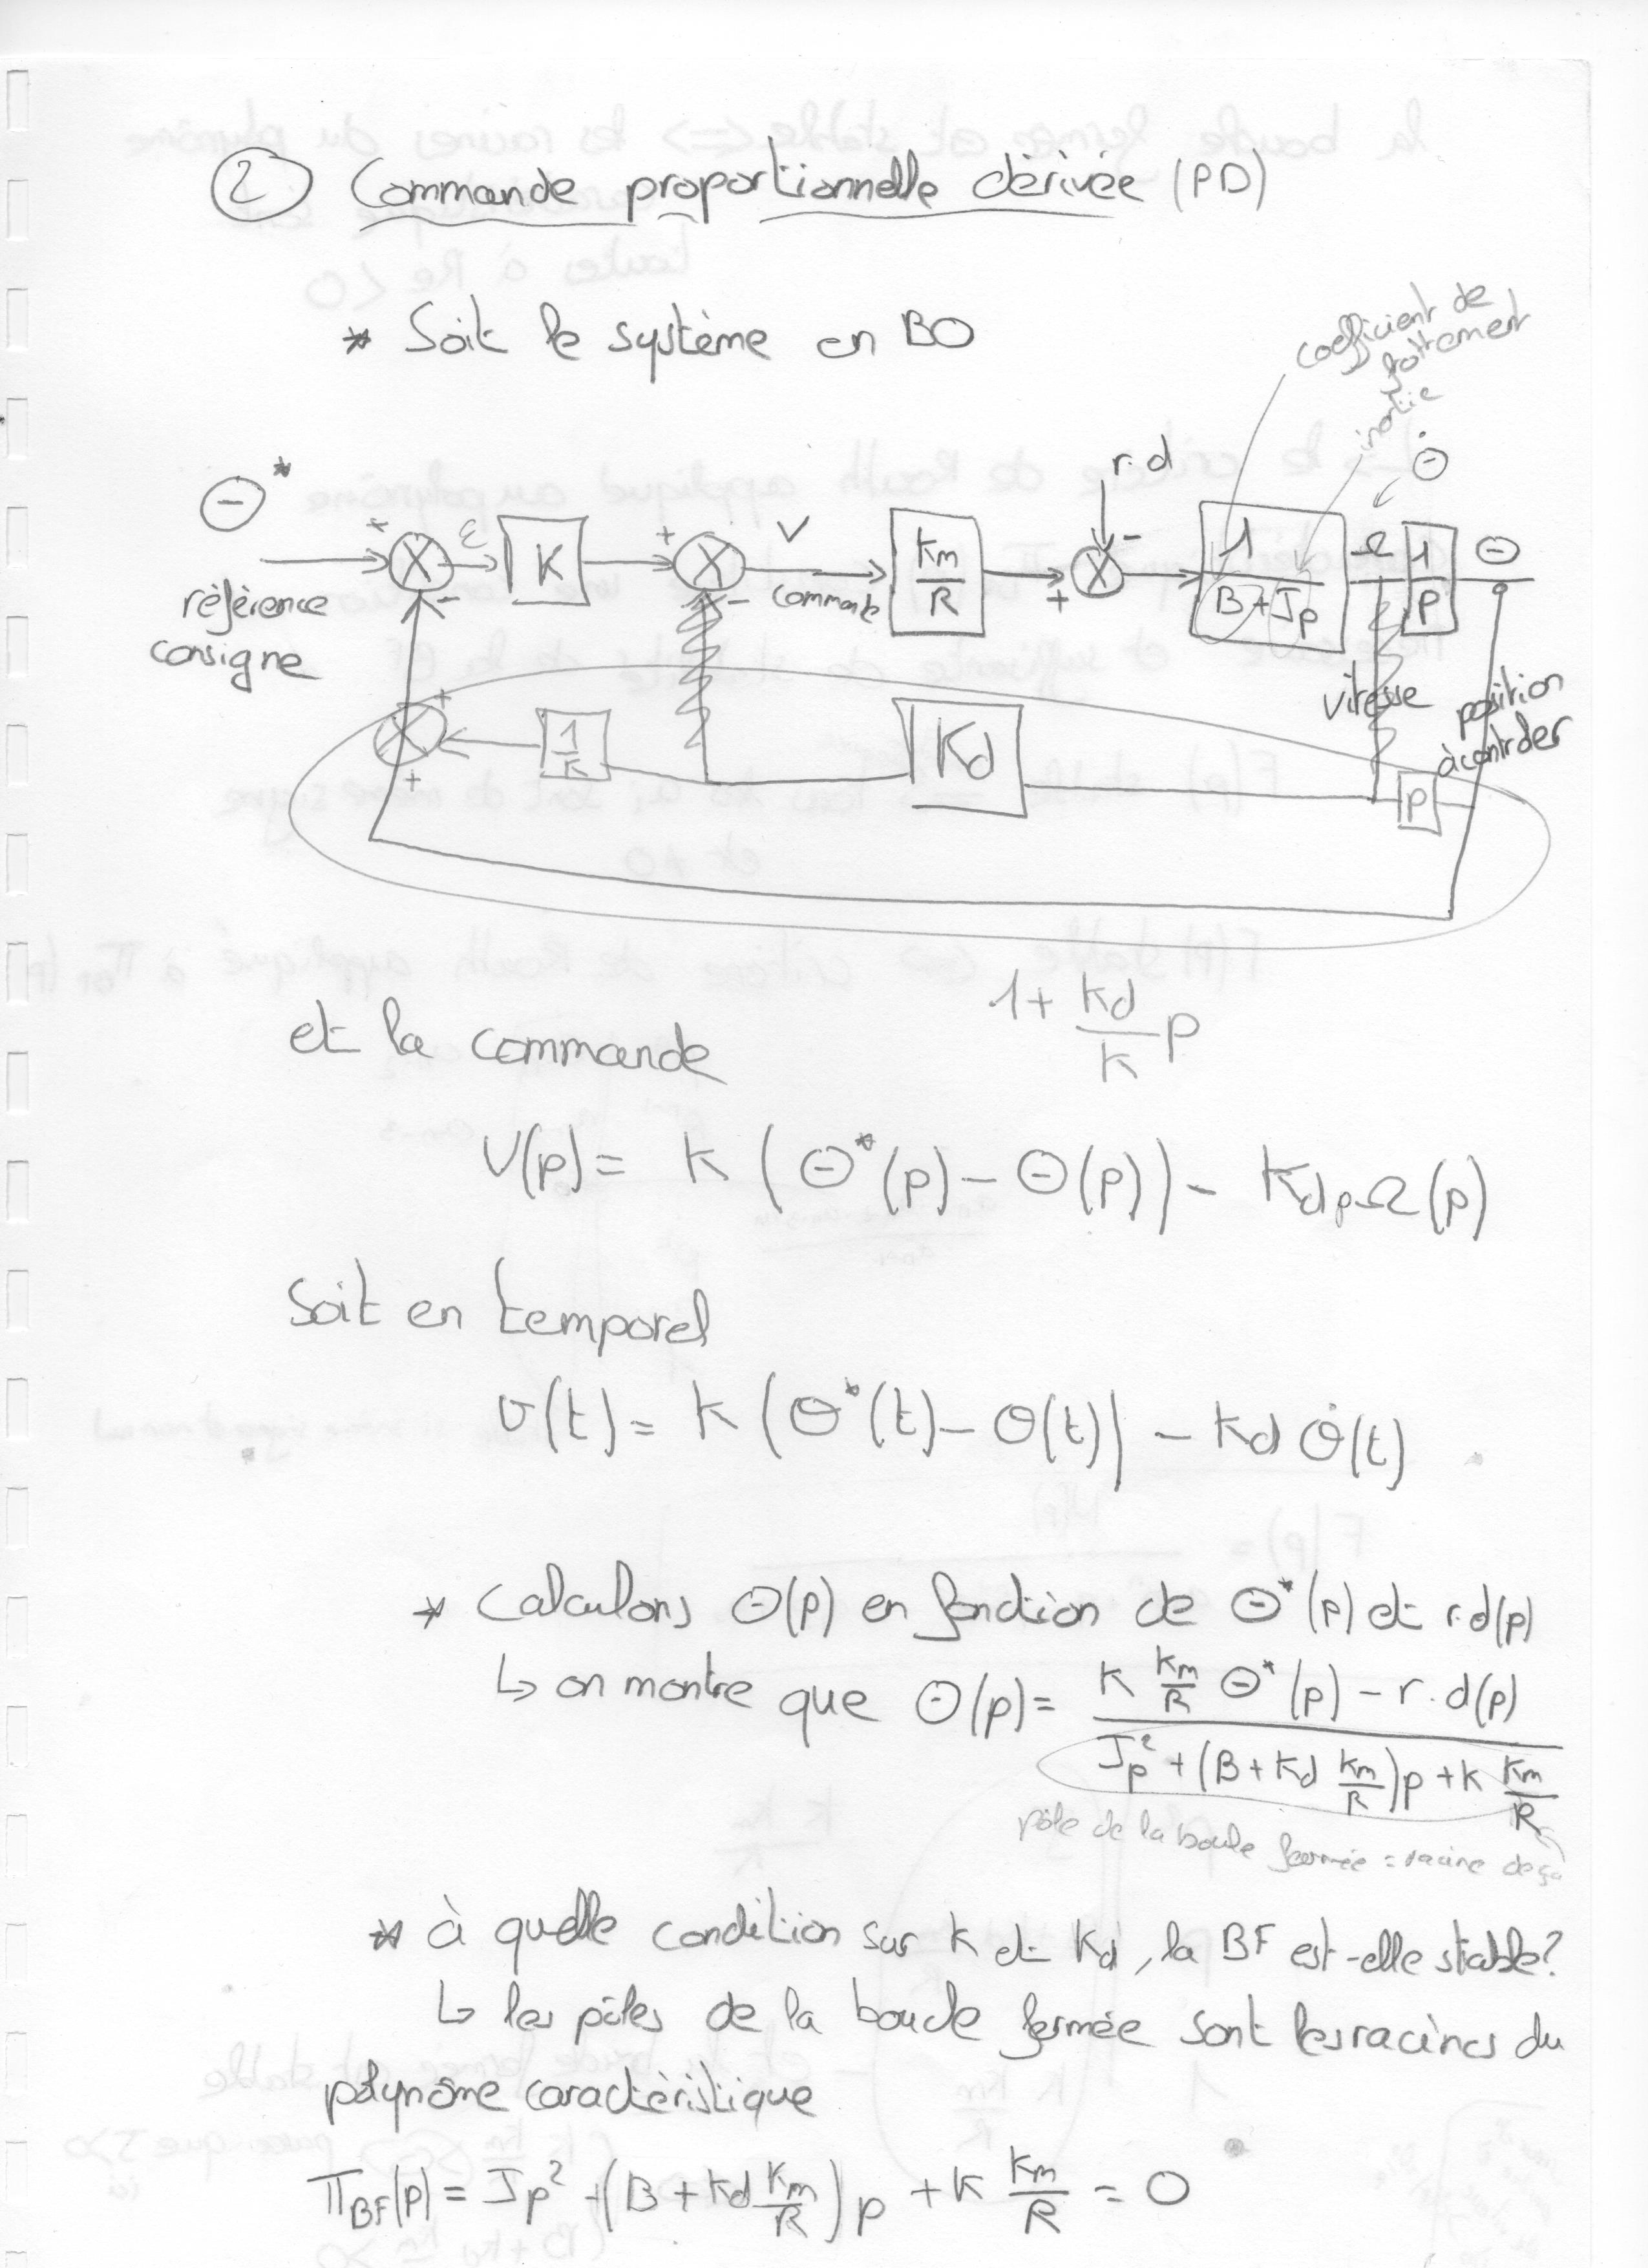 ② Commande proportionnelle dérivée (PD)
* Soit le système en BO
coefficient de
frottement
inertie
Θ* référence
consigne
+ - ε K + - V commande Km/R r.d + - 1/(B+Jp) Ω Θ̇ 1/p Θ
vitesse
position
à contrôler
+ + 1/K Kd p
1 + Kd/K p
et la commande
V(p) = K (Θ*(p) - Θ(p)) - Kd Ω(p)
Soit en temporel
v(t) = K (Θ*(t) - Θ(t)) - Kd Θ̇(t)
* Calculons Θ(p) en fonction de Θ*(p) et r.d(p)
↳ on montre que Θ(p) = (K Km/R Θ*(p) - r.d(p)) / (Jp² + (B + Kd Km/R)p + K Km/R)
pôle de la boule fermée = racine de ça
* à quelle condition sur K et Kd, la BF est-elle stable?
↳ les pôles de la boucle fermée sont les racines du
polynôme caractéristique
Π_BF(p) = Jp² + (B + Kd Km/R) p + K Km/R = 0